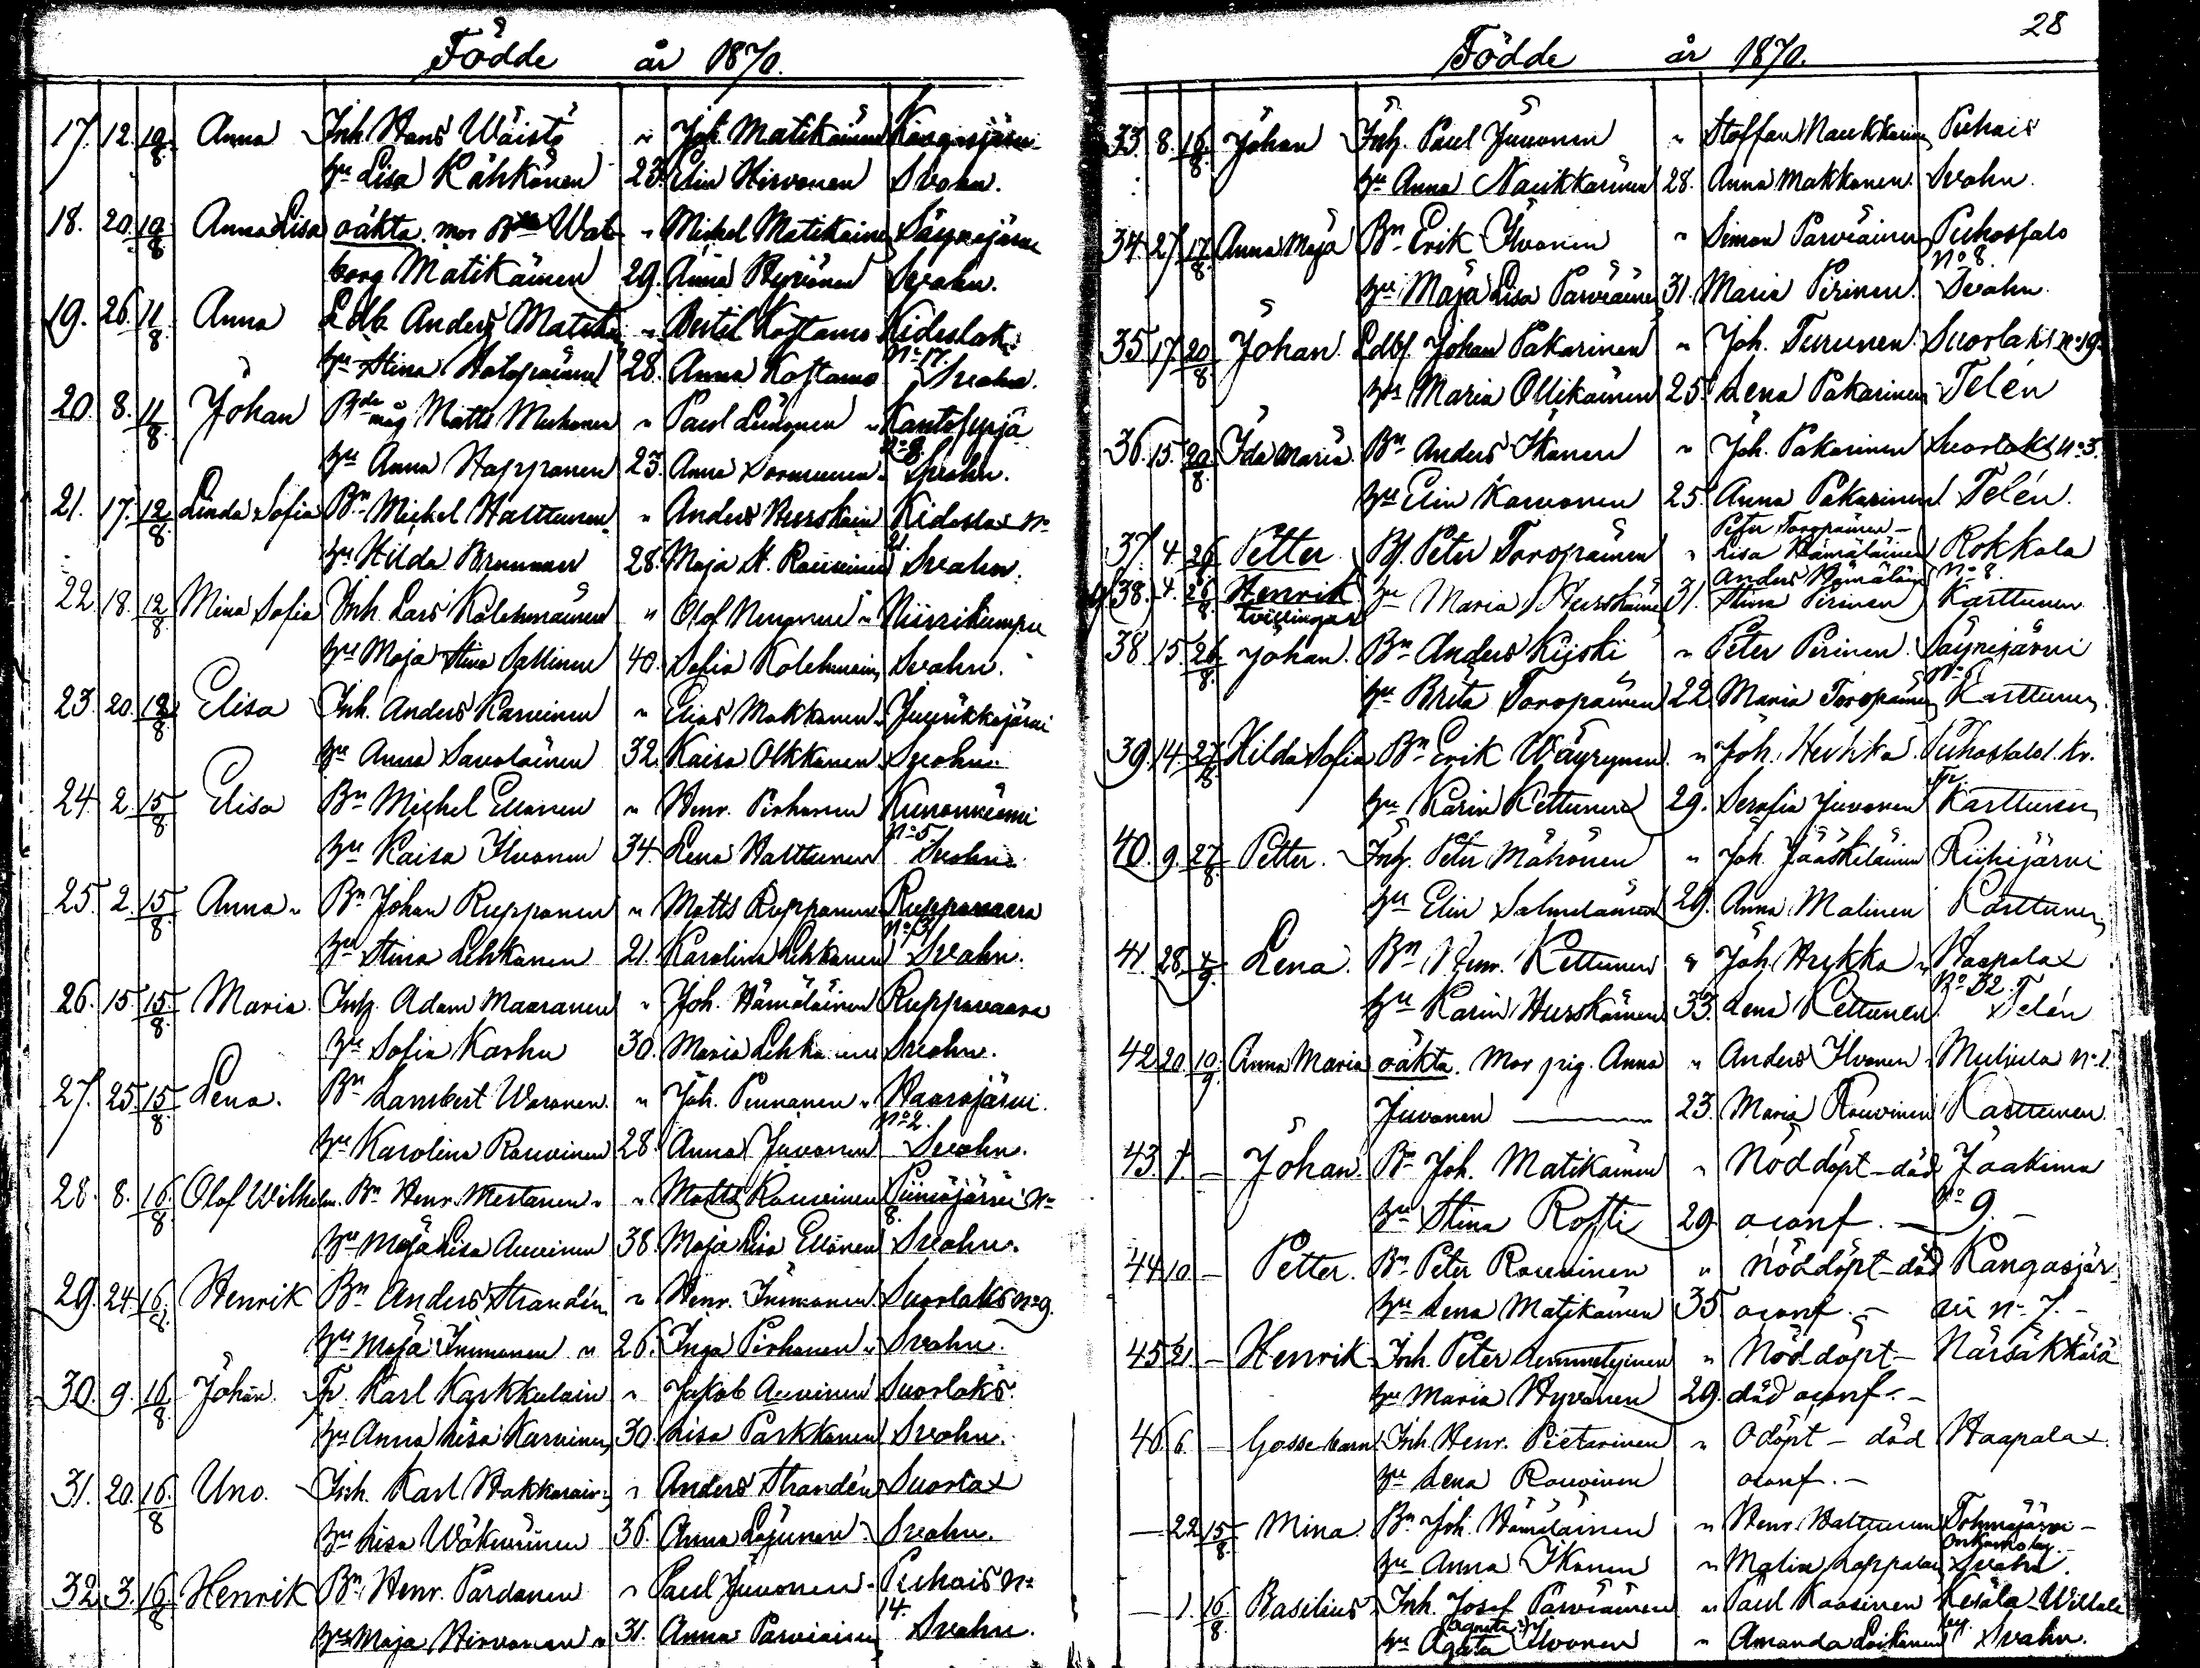 Födde år 1870.
17. 12. 10/8. Anna Inh. Hans Wäistö " Joh. Matikainen Kangasjärvi
hu Lisa Kähkönen 23. Elin Hirvonen Svahn.
18. 20. 10/8 Anna Lisa oäkta. mor Bdr Wal- " Michel Matikaine Säynejärvi
borg Matikainen 29. Anna Hyvönen Svahn.
19. 26. 11/8. Anna Ldb. Anders Matika " Bertil Kostamo Kideslaks
hu Stina Holopainen 28. Anna Kostamo No 17. Svahn.
20. 8. 11/8. Johan Bde måg Matts Muhonen " Paul Leinonen "
hu Anna Happonen 23. Anna Svahn.
21. 17. 12/8. Linda Sofia Bn Michel Halttunen " Anders Hurskain Kideslax No
hu Hilda Brunnar 28. Maja St. Rouvinen 21. Svahn.
22. 18. 12/8 Mina Sofia Inh. Lars Kolehmainen " Olof Nenonen " Niinikumpu
hu Maja Stina Sallinen 40. Sofia Kolehmain Svahn.
23. 20. 12/8 Elisa Inh. Anders Karvinen " Elias Makkonen " Juurikkajärvi
hu Anna Savolainen 32. Kaisa Olkkonen Svahn.
24. 2. 15/8 Elisa Bn Michel Ellonen " Henr. Pirhonen Kunonniemi
hu Kaisa Ilvonen 34. Lena Halttunen No 5 Svahn.
25. 2. 15/8. Anna " Bn Johan Rupponen " Matts Ruppanen Ruppovaara
hu Stina Lehkonen 21. Karolina Lehkonen No 13 Svahn.
26. 15. 15/8 Maria. Inh. Adam Maaranen " Joh. Hämäläinen Ruppovaara
hu Sofia Karhu 30. Maria Lehkonen Svahn.
27. 25. 15/8. Lena. Bn Lambert Woronen. " Joh. Pennanen " Haarajärvi.
hu Karolina Rouvinen 28. Anna Juvonen No 2. Svahn.
28. 8. 16/8 Olof Wilhelm. Bn Henr. Mertanen " " Matts Rouvinen Piimäjärvi No
hu Maja Lisa Auvinen 38. Maja Lisa Ellonen 8. Svahn.
29. 24. 16/8. Henrik Bn Anders Strandén " Henr. Immonen Suorlaks No 9.
hu Maja Immonen " 26. Inga Pirhonen " Svahn.
30. 9. 16/8. Johan. Tr. Karl Karkkulain " Jakob Auvinen Suorlaks.
hu Anna Lisa Karvinen 30. Lisa Parkkonen Svahn.
31. 20. 16/8 Uno. Inh. Karl Hakkarain " Anders Strandén Suorlax
hu Lisa Wäkeväinen 36. Anna Löjönen " Svahn.
32. 3. 16/8 Henrik Bn Henr. Pardanen " Paul Juvonen " Puhois No
hu Maja Hirvonen " 31. Anna Parviainen 14. Svahn.
28
Födde år 1870.
33. 8. 16/8. Johan Inh. Paul Juvonen " Staffan Naukkarinen Puhois
hu Anna Naukkarinen 28. Anna Makkonen. Svahn.
34. 27. 17/8. Anna Maja Bn Erik Ilvonen " Simon Parviainen Puhossalo No 8.
hu Maja Lisa Parviainen 31. Maria Pirinen. Svahn.
35. 17. 20/8. Johan. Ldbf. Johan Pakarinen " Joh. Turunen. Suorlaks No 19.
hu Maria Ollikainen 25. Lena Pakarinen Telén
36. 15. 20/8. Ida Maria. Bn Anders Ikonen " Joh. Pakarinen Suorlaks No 3.
hu Elin Karvonen 25. Anna Pakarinen. Telén.
Peter Toropainen –
37. 4. 26 Petter Bf. Peter Toropainen " Lisa Hämäläinen Rokkala
Anders Hämäläin No 8.
(38. 4. 26/8. Henrik hu Maria Hurskainen 31. Stina Pirinen Karttunen.
tvillingar
38. 15. 26/8. Johan. Bn Anders Kiiski " Peter Pirinen. Säynejärvi
hu Brita Toropainen 22. Maria Toropainen Karttunen
39. 14. 27/8 Hilda Sofia Bn Erik Wäyrynen " Joh. Huhka. Puhossalo.
hu Karin Kettunen 29. Serafia Juvonen Karttunen
40. 9. 27/8. Petter. Inh. Peter Mähönen " Joh. Jääskeläinen Riihijärvi
hu Elin Salmelainen 29. Anna Malinen Karttunen
41. 28. 4/9. Lena. Bn Henr. Kettunen " Joh. Hukka " Haapalax
hu Karin Hurskainen 33. Lena Kettunen. No 32. Telén
42. 20. 10/9. Anna Maria oäkta. Mor pig. Anna " Anders Ilvonen " Muljula No 1.
Juvonen — 23. Maria Rouvinen Karttunen.
43. 1. – Johan. Bn Joh. Matikainen " Nöddöpt – död Jaakima
hu Stina Rosti 29. oconf. – No 9. –
44. 10. – Petter. Bn Peter Rouvinen " nöddöpt – död Kangasjär-
hu Lena Matikainen 35 oconf. – vi No 7. –
45. 21. – Henrik. Inh. Peter Lemmetyinen " Nöddöpt – Närsäkkälä
hu Maria Hyvönen 29. död oconf. –
46. 6. – Gossebarn Inh. Henr. Pietarinen " Odöpt – död Haapalax.
hu Lena Rouvinen oconf. –
– 22. 15/8. Mina. Bn Joh. Hämäläinen " Henr. Halttunen Tohmajärvi –
hu Anna Ikonen " Malin Svahn.
– 1. 16/8. Basilius. Inh. Josef Parviainen " Paul Kaasinen Kesäla –
Agneta
hu Agata Ilvonen " Amanda Loikanen Svahn.